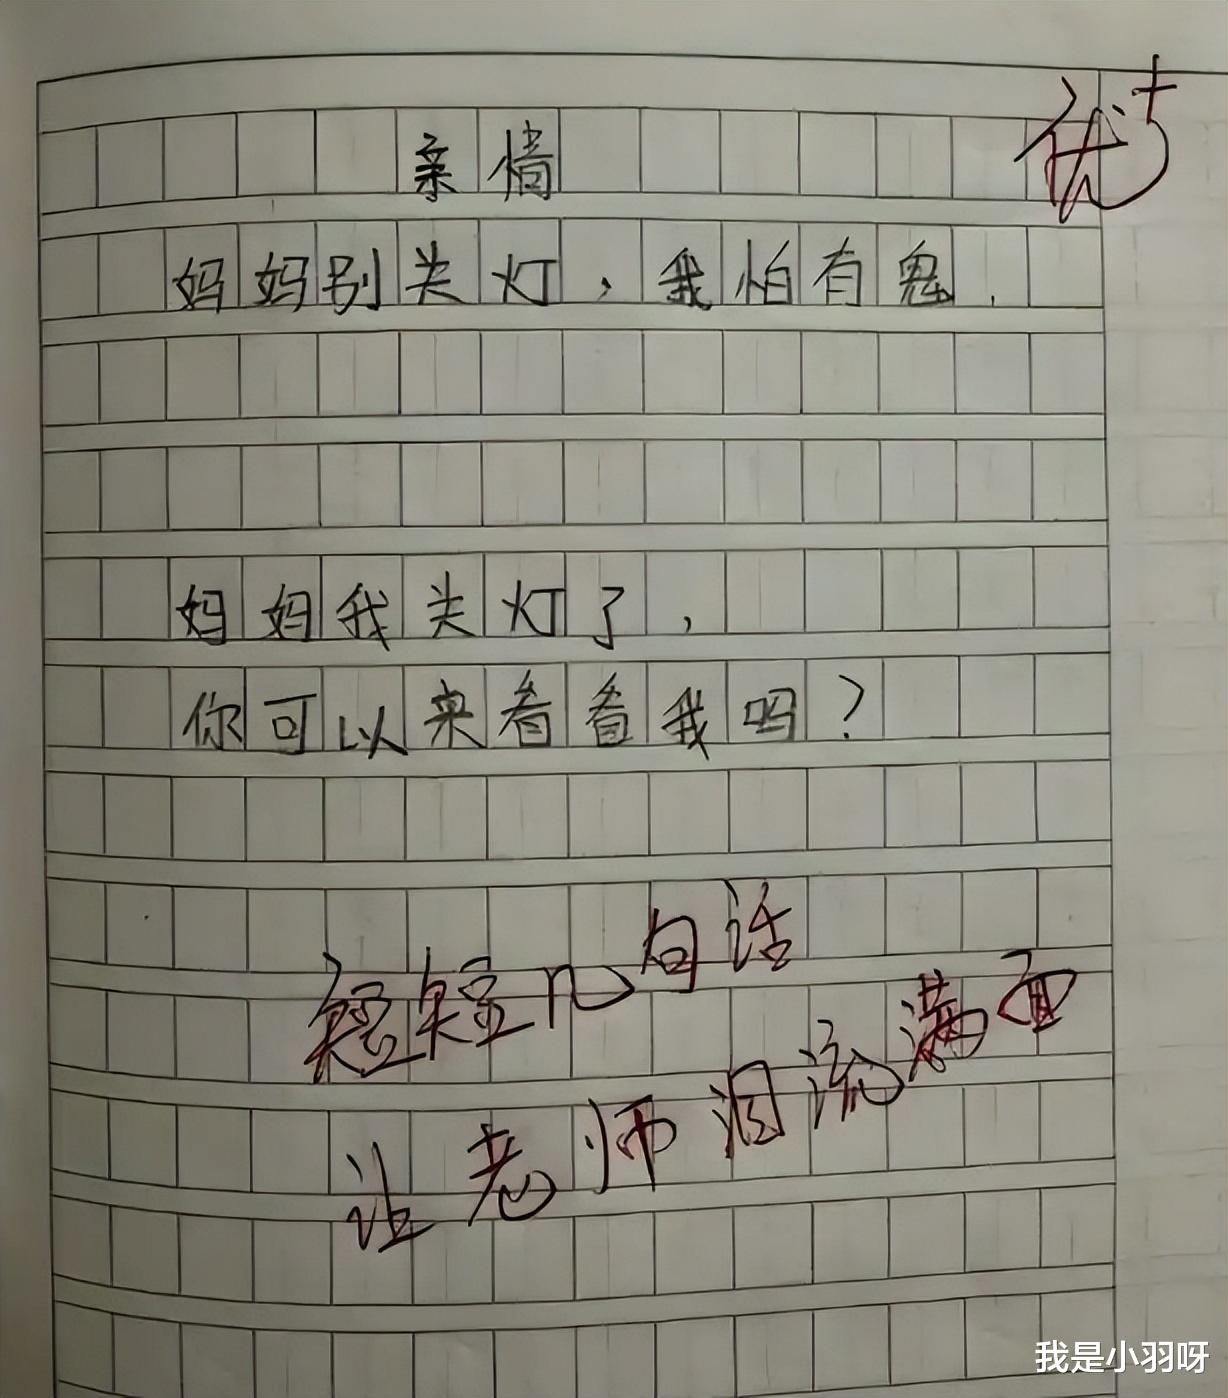 亲情
优+
妈妈别关灯，我怕有鬼.
妈妈我关灯了，
你可以来看看我吗？
短短几句话
让老师泪流满面
我是小羽呀